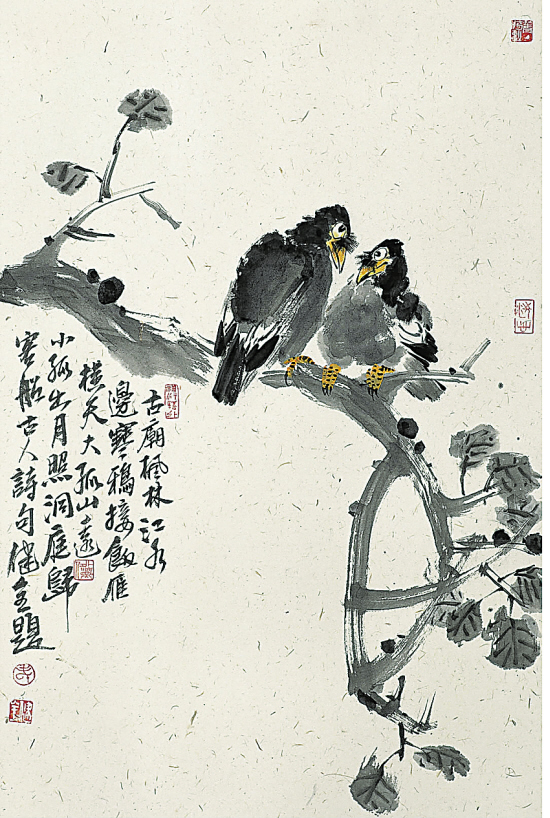 古廟楓林江水
邊寒鴉接飯雁
橫天大孤山遠
小孤出月照洞庭歸
客船古人詩句健全題